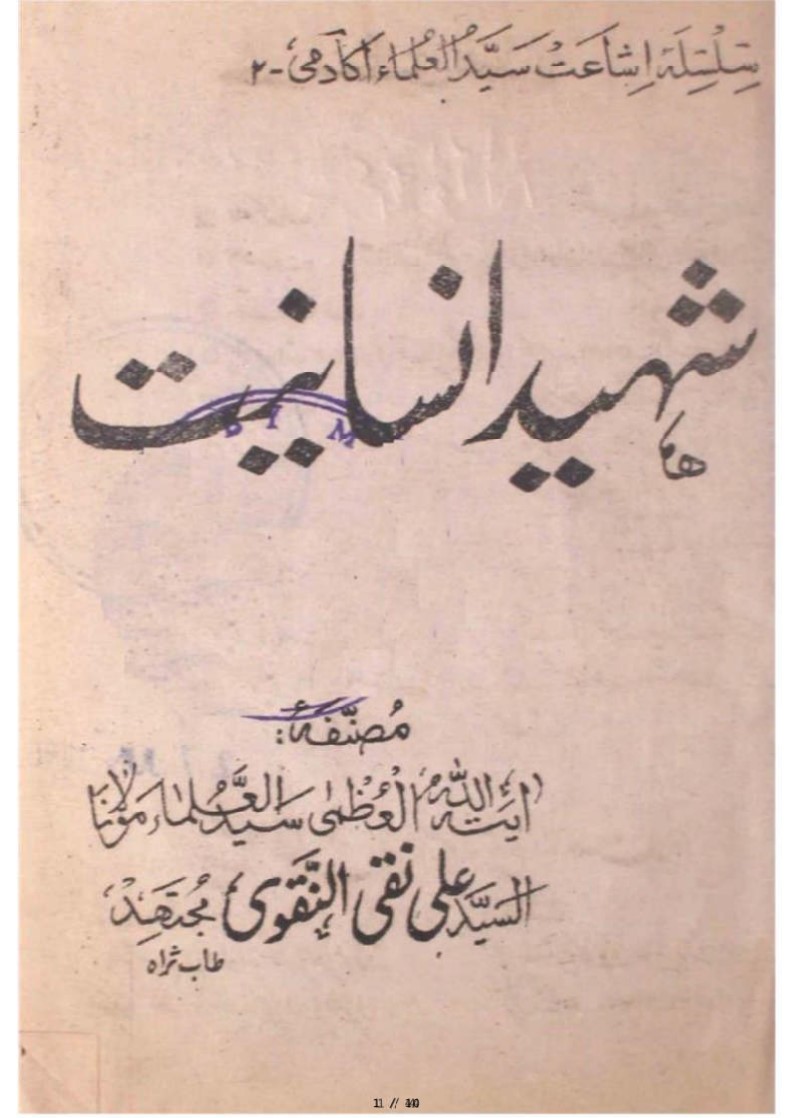 سِلْسِلَۂ اِشَاعَتْ سَیَّدُ العُلماء اکاڈمی - ۲
شہید انسانیت
D I M
مُصنَّفہٴ:
آیتہ اللہ العُظمٰی سَیدُ العُلماء مَولانا
السیَّد علی نقی النَّقوی مُجتَهِدْ
طاب ثراہ
11 //